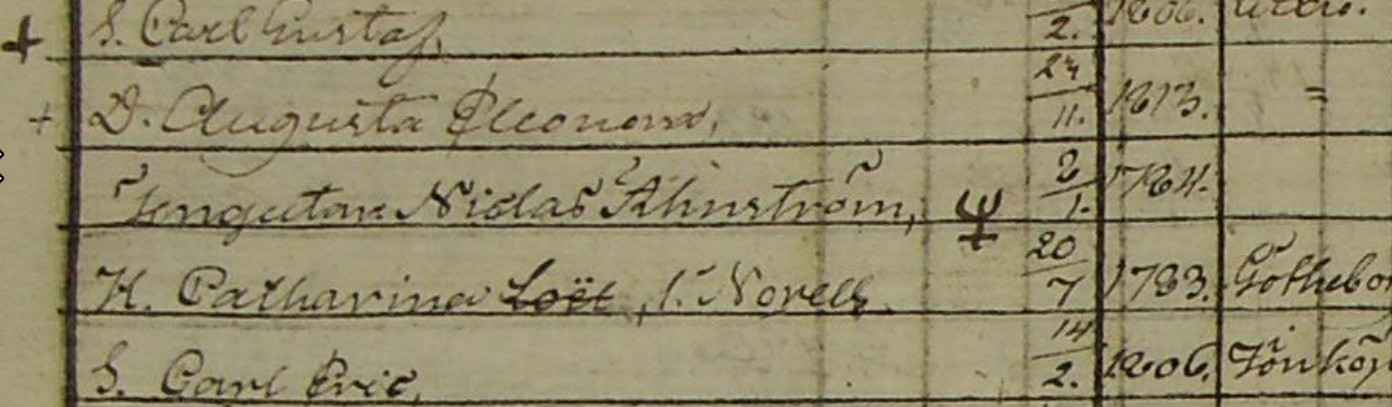 S. Carl Gustaf, /2. 1806.
D. Augusta Eleonora, 24/11. 1813. =
Niclas Ahnström, 2/1. 1784.
H. Catharina Loët, f. Norell 20/7 1783. Göthebo
S. Carl Eric, 14/2. 1806. Jönköp